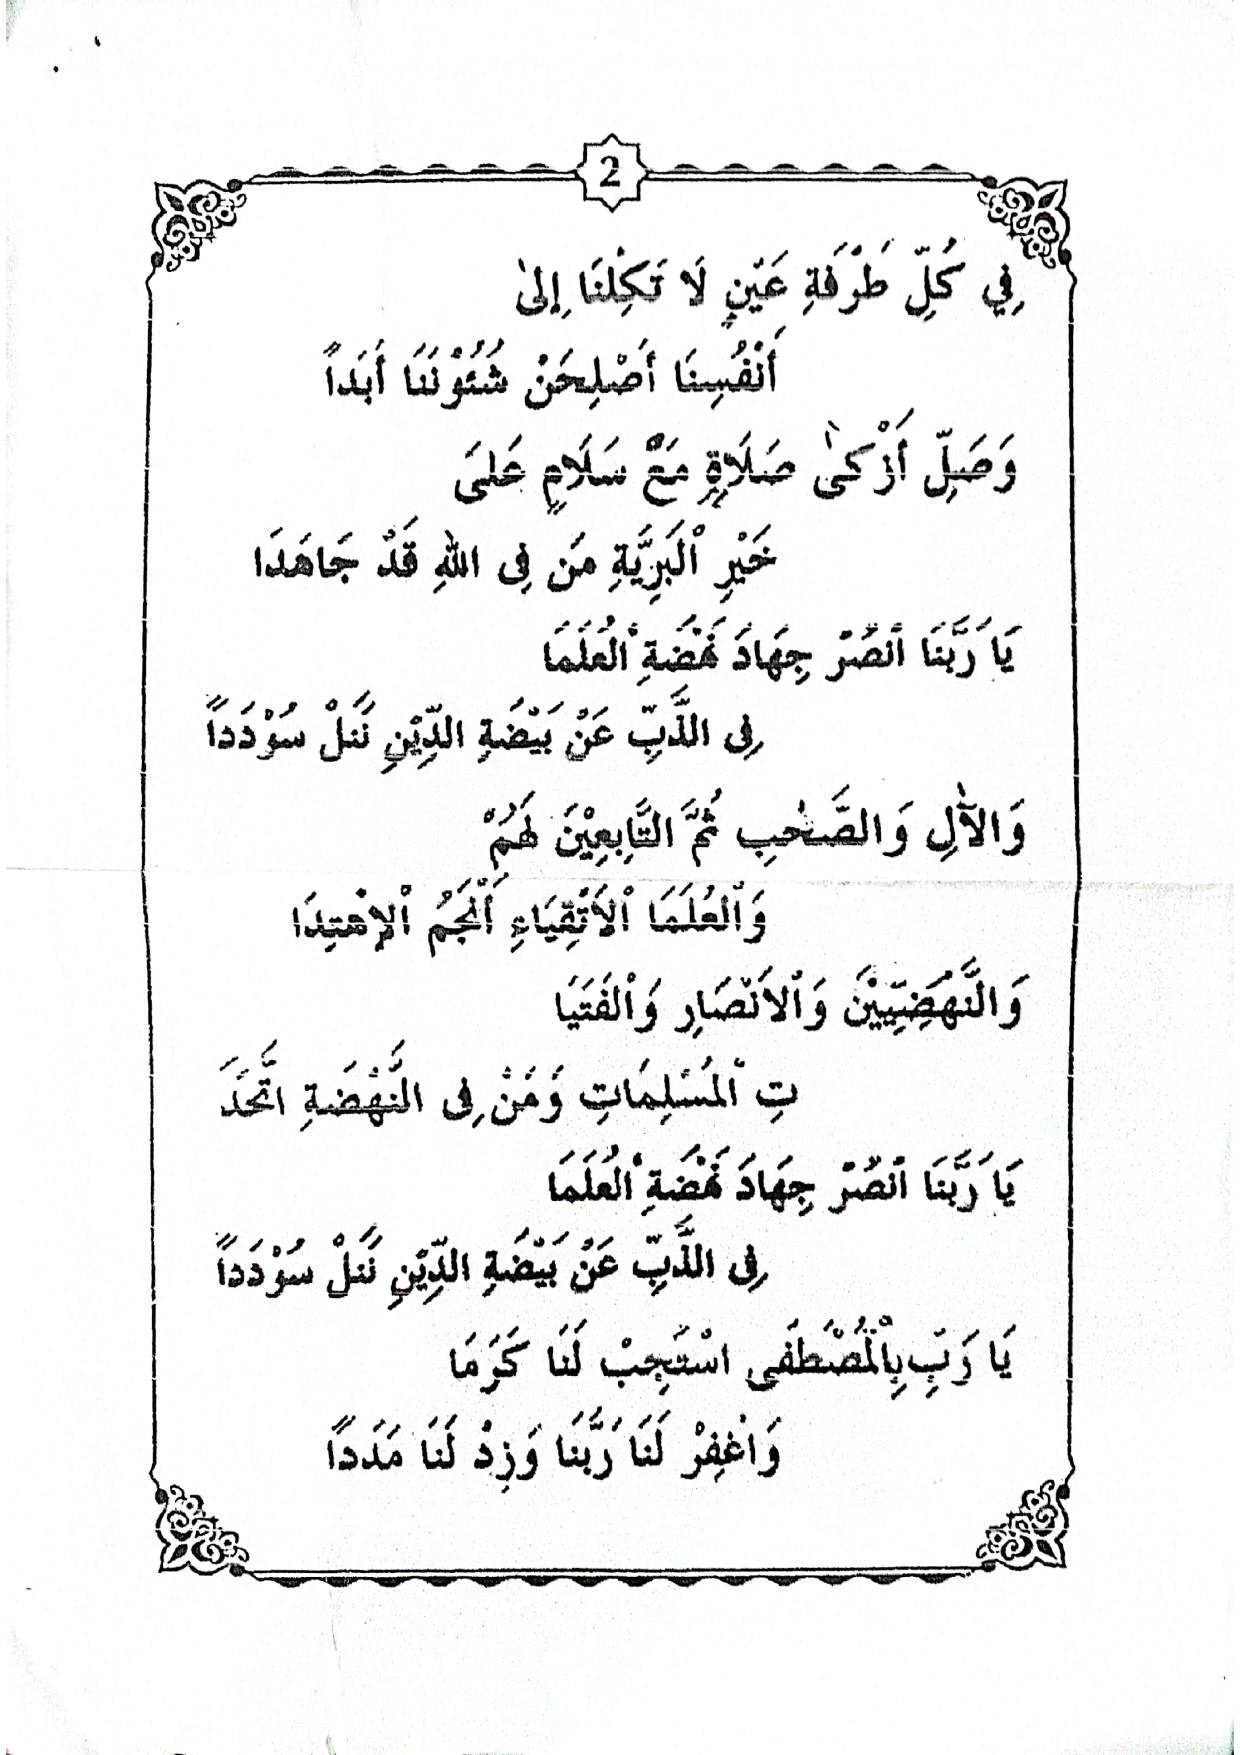 2
فِي كُلِّ طَرْفَةِ عَيْنٍ لَا تَكِلْنَا إِلىٰ
أَنْفُسِنَا أَصْلِحَنْ شُئُوْنَنَا أَبَداً
وَصَلِّ أَزْكىٰ صَلَاةٍ مَعْ سَلَامٍ عَلىَ
خَيْرِ ٱلْبَرِيَّةِ مَن فِى اللهِ قَدْ جَاهَدَا
يَا رَبَّنَا ٱنْصُرْ جِهَادَ نَهْضَةِ ٱلْعُلَمَا
فِى الذَّبِّ عَنْ بَيْضَةِ الدِّيْنِ نَنَلْ سُوْدَداً
وَالْآلِ وَالصَّحْبِ ثُمَّ التَّابِعِيْنَ لَهُمْ
وَٱلْعُلَمَا ٱلْاَتْقِيَاءِ أَنْجُمُ ٱلْإِهْتِدَا
وَالنَّهْضِيِّيْنَ وَٱلْاَنْصَارِ وَٱلْفَتَيَا
تِ ٱلْمُسْلِمَاتِ وَمَنْ فِى النَّهْضَةِ اتَّحَدَ
يَا رَبَّنَا ٱنْصُرْ جِهَادَ نَهْضَةِ ٱلْعُلَمَا
فِى الذَّبِّ عَنْ بَيْضَةِ الدِّيْنِ نَنَلْ سُوْدَداً
يَا رَبِّ بِٱلْمُصْطَفَى اسْتَجِبْ لَنَا كَرَمَا
وَاغْفِرْ لَنَا رَبَّنَا وَزِدْ لَنَا مَدَداً